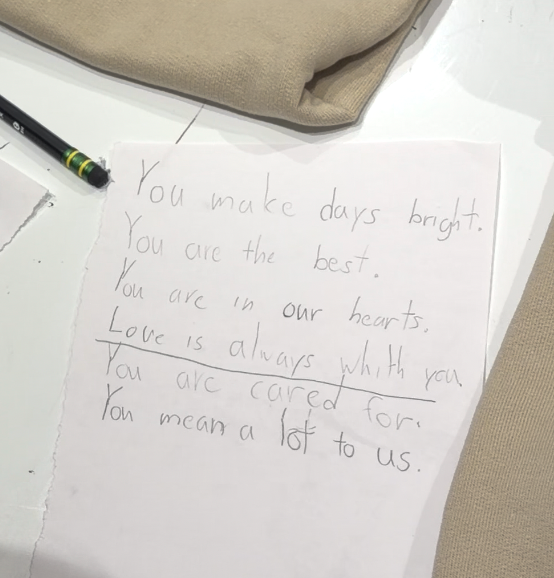 You make days bright.
You are the best.
You are in our hearts.
Love is always whith you.
You are cared for.
You mean a lot to us.